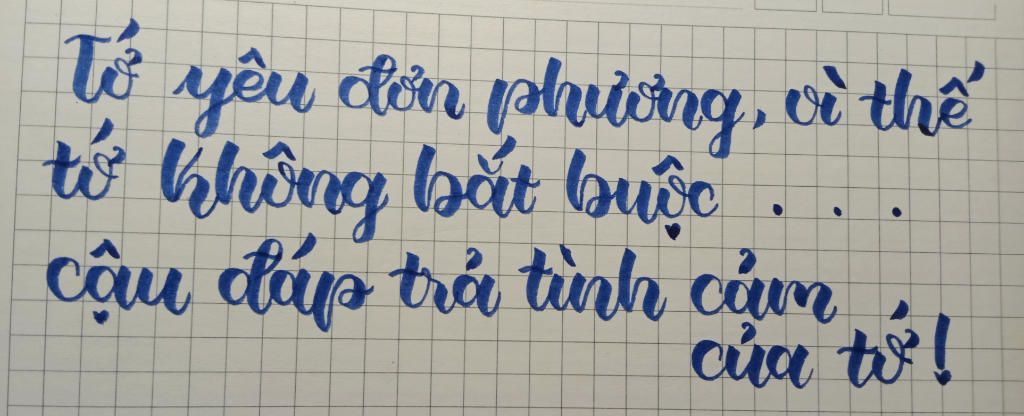 Tớ yêu đơn phương, vì thế
tớ không bắt buộc . . .
cậu đáp trả tình cảm
của tớ!